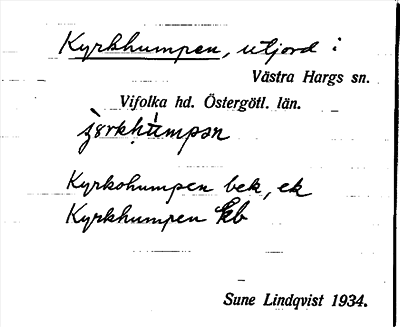 Kyrkhumpen, utjord i
Västra Hargs sn.
Vifolka hd. Östergötl. län.
Kyrkohumpen bek, ek
Kyrkhumpen Eb
Sune Lindqvist 1934.